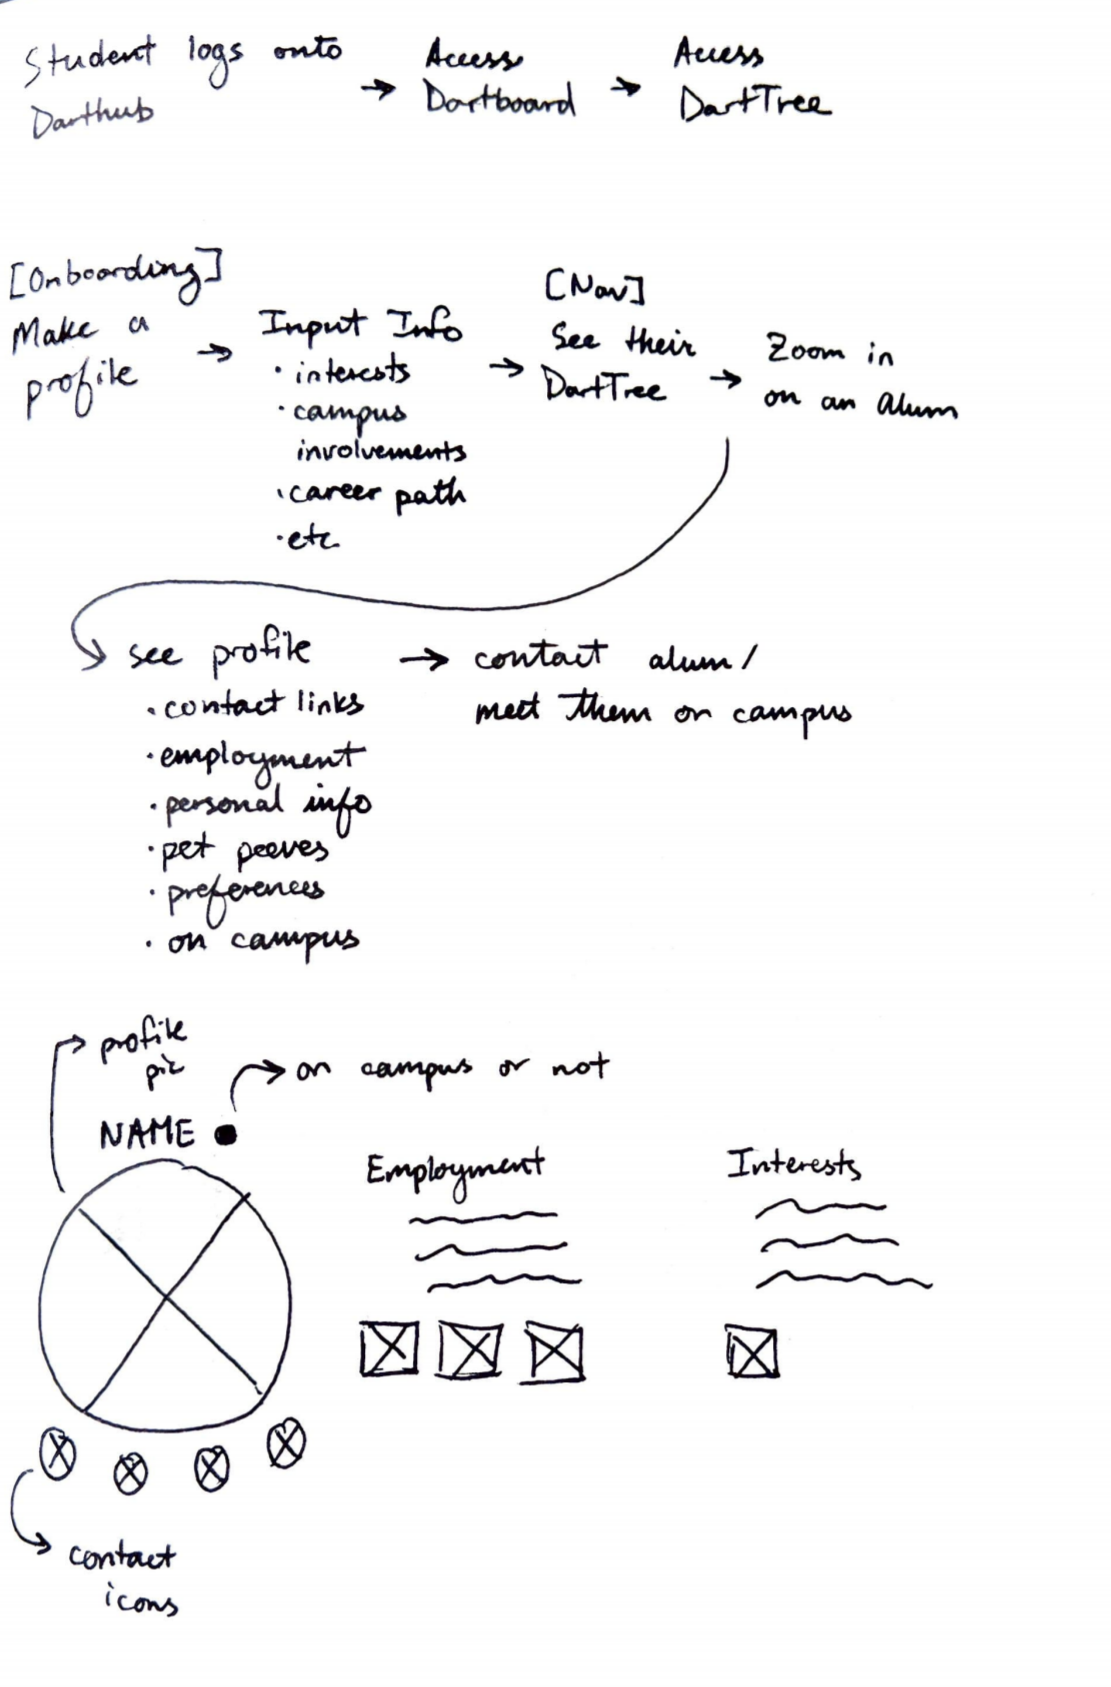 Student logs onto
Darthub
→ Access
Dartboard
→ Access
DartTree
[Onboarding]
Make a
profile
→ Input Info
· interests
· campus
involvements
· career path
· etc
→ [Nav]
See their
DartTree
→ Zoom in
on an alum
see profile
· contact links
· employment
· personal info
· pet peeves
· preferences
· on campus
→ contact alum/
meet them on campus
profile
pic
→ on campus or not
NAME
Employment
Interests
contact
icons